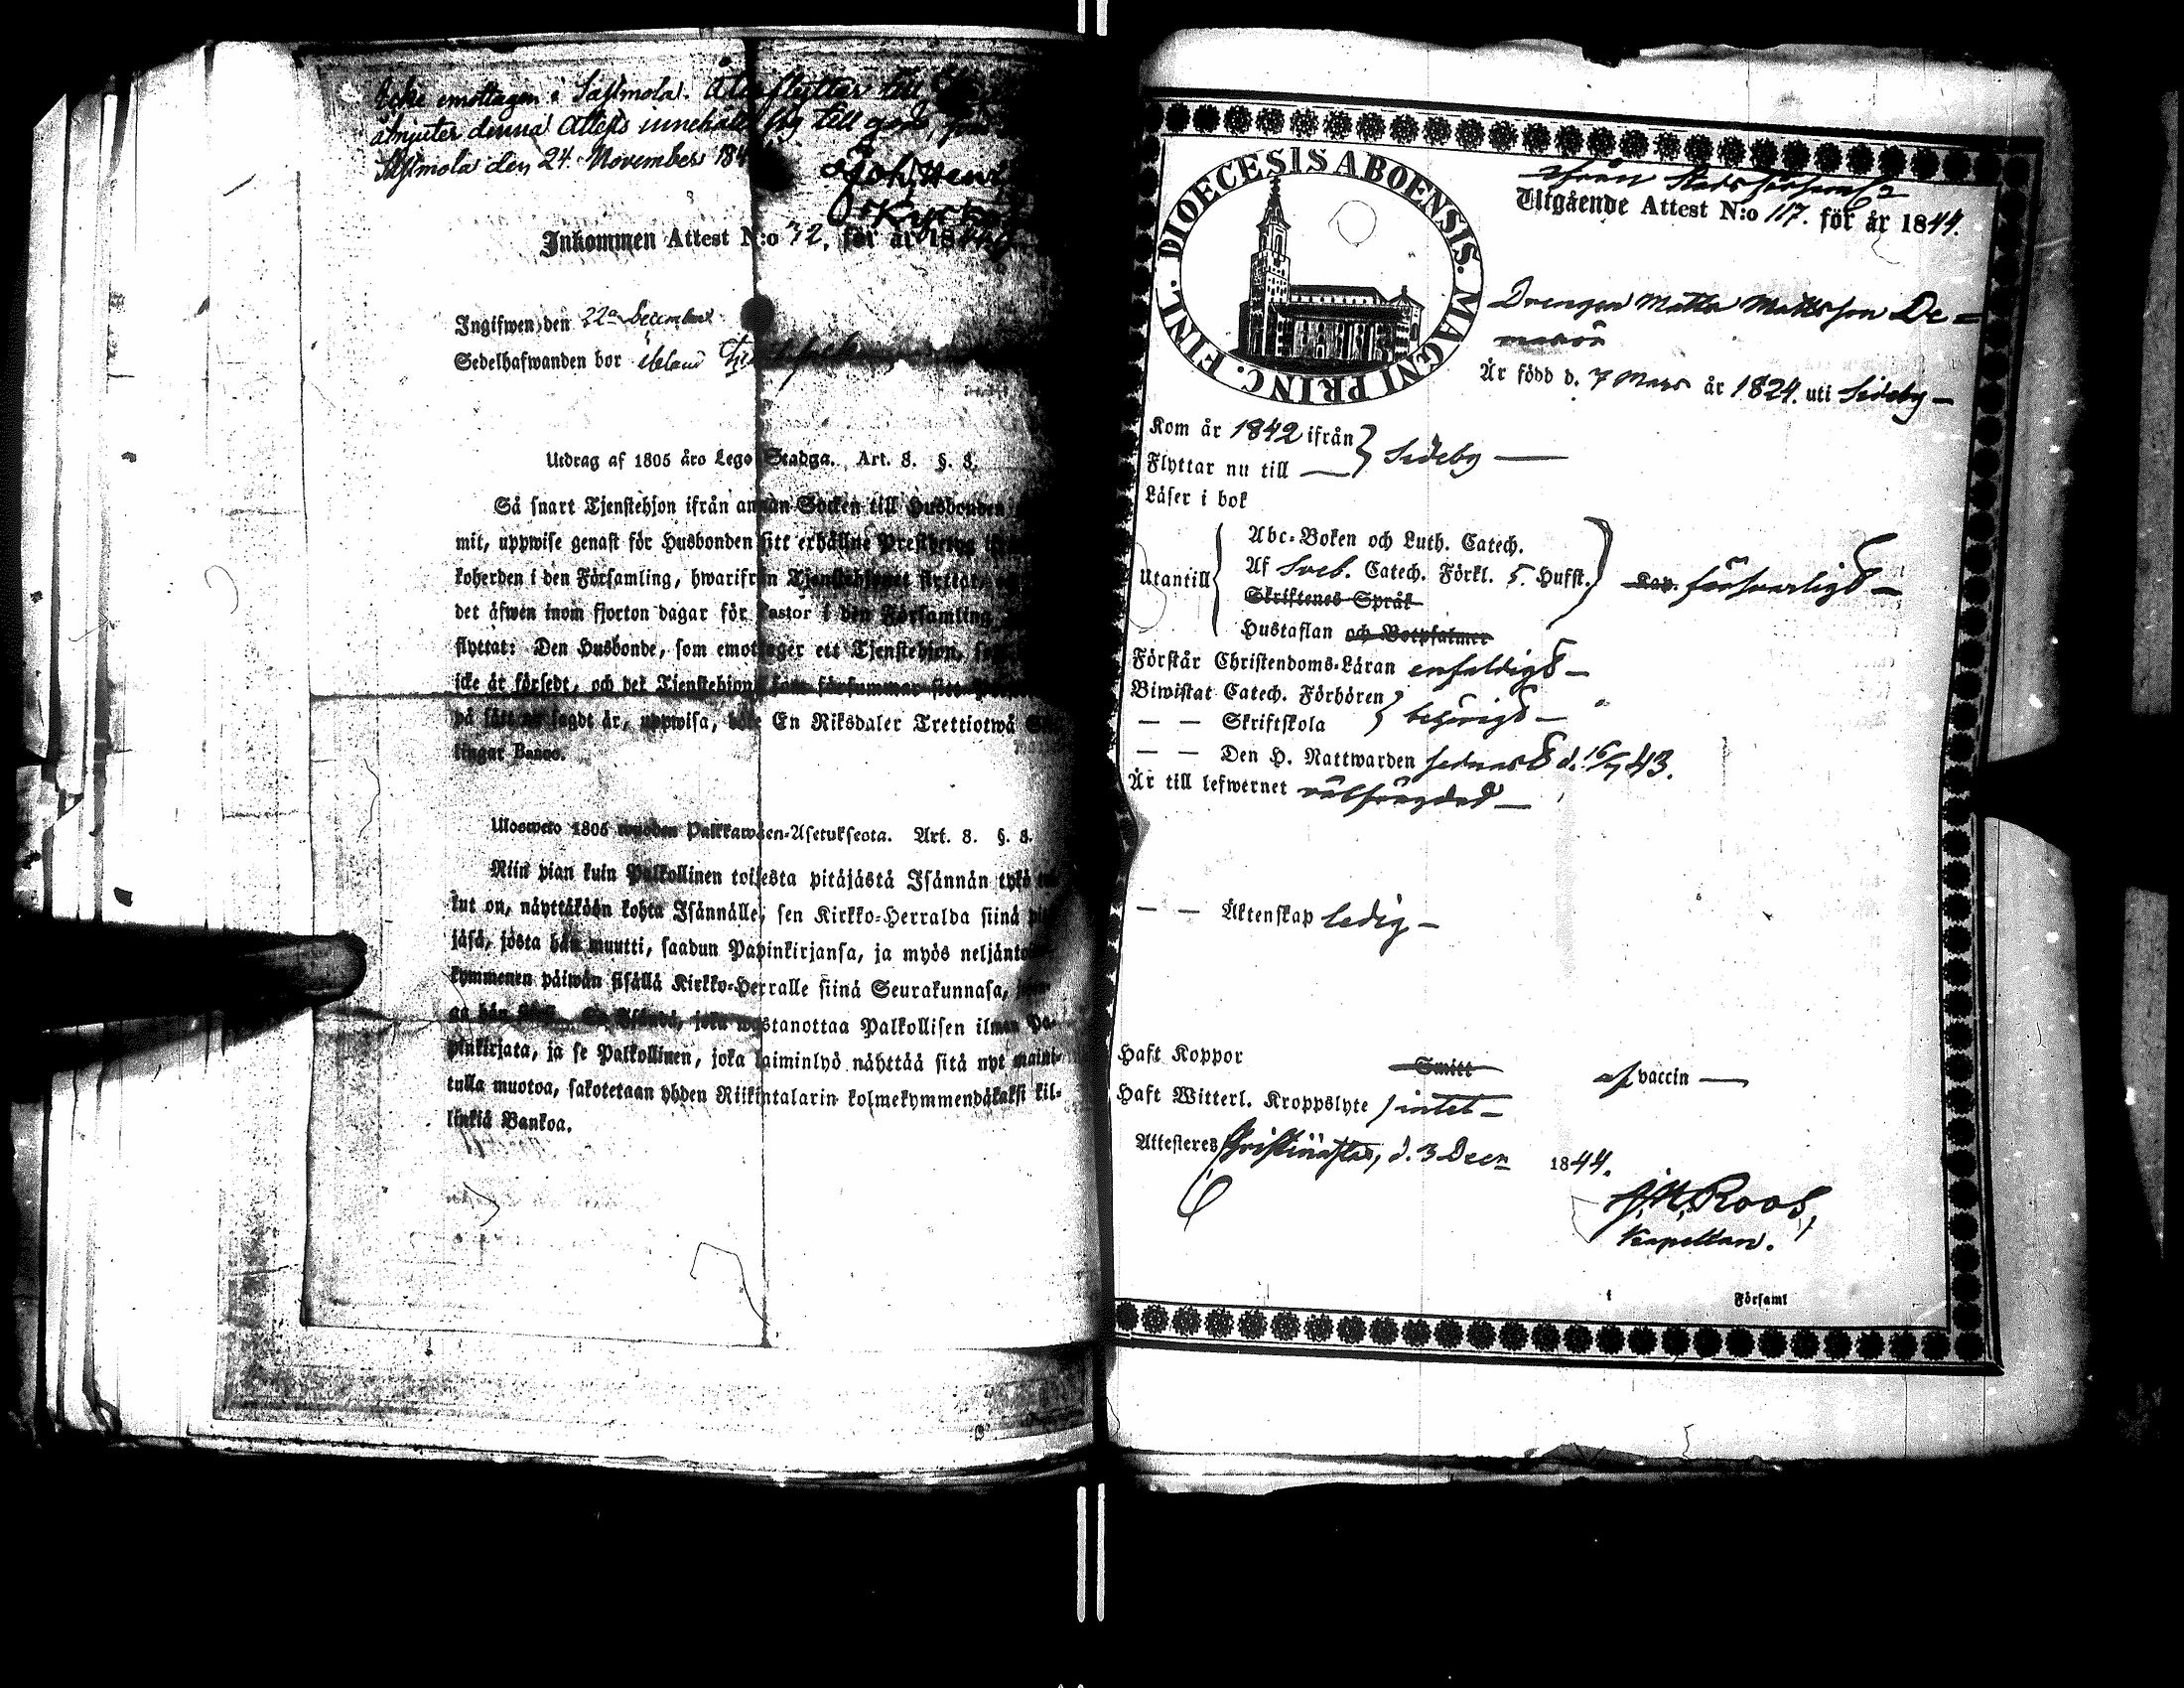 Icke emottagen i Sastmola. Återflyttar till
åtnjuter denna Attests innehåll sig till godo,
Sastmola den 24. November 184
Joh. Henr.
Inkommen Attest N:o 32, för år 1844
Ingifwen den 22a December
Sedelhafwanden bor
Utdrag af 1805 års Lego Stadga. Art. 8. §. 8.
Så snart Tjenstehjon ifrån annan Socken till Husbonden
mit, uppwise genast för Husbonden sitt erhållne Prestbetyg
koherden i den Församling, hwarifrån Tjenstehjonet flyttat,
det äfwen inom fjorton dagar för Pastor i den Församling,
flyttat: Den Husbonde, som emottager ett Tjenstehjon,
icke är försedt, och det Tjenstehjon som försummar sitt
på sätt nu sagdt är, uppwisa, böte En Riksdaler Trettiotwå
lingar Banco.
Ulosweto 1805 wuoden Palkkawäen-Asetuksesta. Art. 8. §. 8.
Niin pian kuin Palkollinen toisesta pitäjästä Isännän tykö
kut on, näyttäköön kohta Isännälle, sen Kirkko-Herralda siinä
jäsä, josta hän muutti, saadun Papinkirjansa, ja myös neljäntoista
kymmenen päiwän sisällä Kirkko-Herralle siinä Seurakunnasa,
ga hän Isändä, joka wastanottaa Palkollisen ilman Pa-
pinkirjata, ja se Palkollinen, joka laiminlyö näyttää sitä nyt maini-
tulla muotoa, sakotetaan yhden Riikintalarin kolmekymmendäkaksi kil-
linkiä Bankoa.
DIOECESIS ABOENSIS. MAGNI PRINC. FINL.
ifrån Stadsförsaml
Utgående Attest N:o 117. för år 1844.
Drengen Matts Mattsson De=
Är född d. 7 Mars år 1824. uti Sideby —
Kom år 1842 ifrån } Sideby —
Flyttar nu till —
Läser i bok
Utantill { Abc-Boken och Luth. Catech.
Af Sveb. Catech. Förkl. 5. Hufst. } Kap. försvarligt —
Skriftenes Språk
Hustaflan och Botpsalmer
Förstår Christendoms-Läran enfaldigt —
Biwistat Catech. Förhören } behörigt —
— — Skriftskola
— — Den H. Nattwarden sednast d. 16/7 43.
Är till lefwernet välfrägdad —
— — Äktenskap ledig —
Haft Koppor Smitt af vaccin —
Haft Witterl. Kroppslyte / intet —
Attesteres Christinæstad, d. 3 Decr 1844.
J. H. Roos,
Kapellan.
i Församl